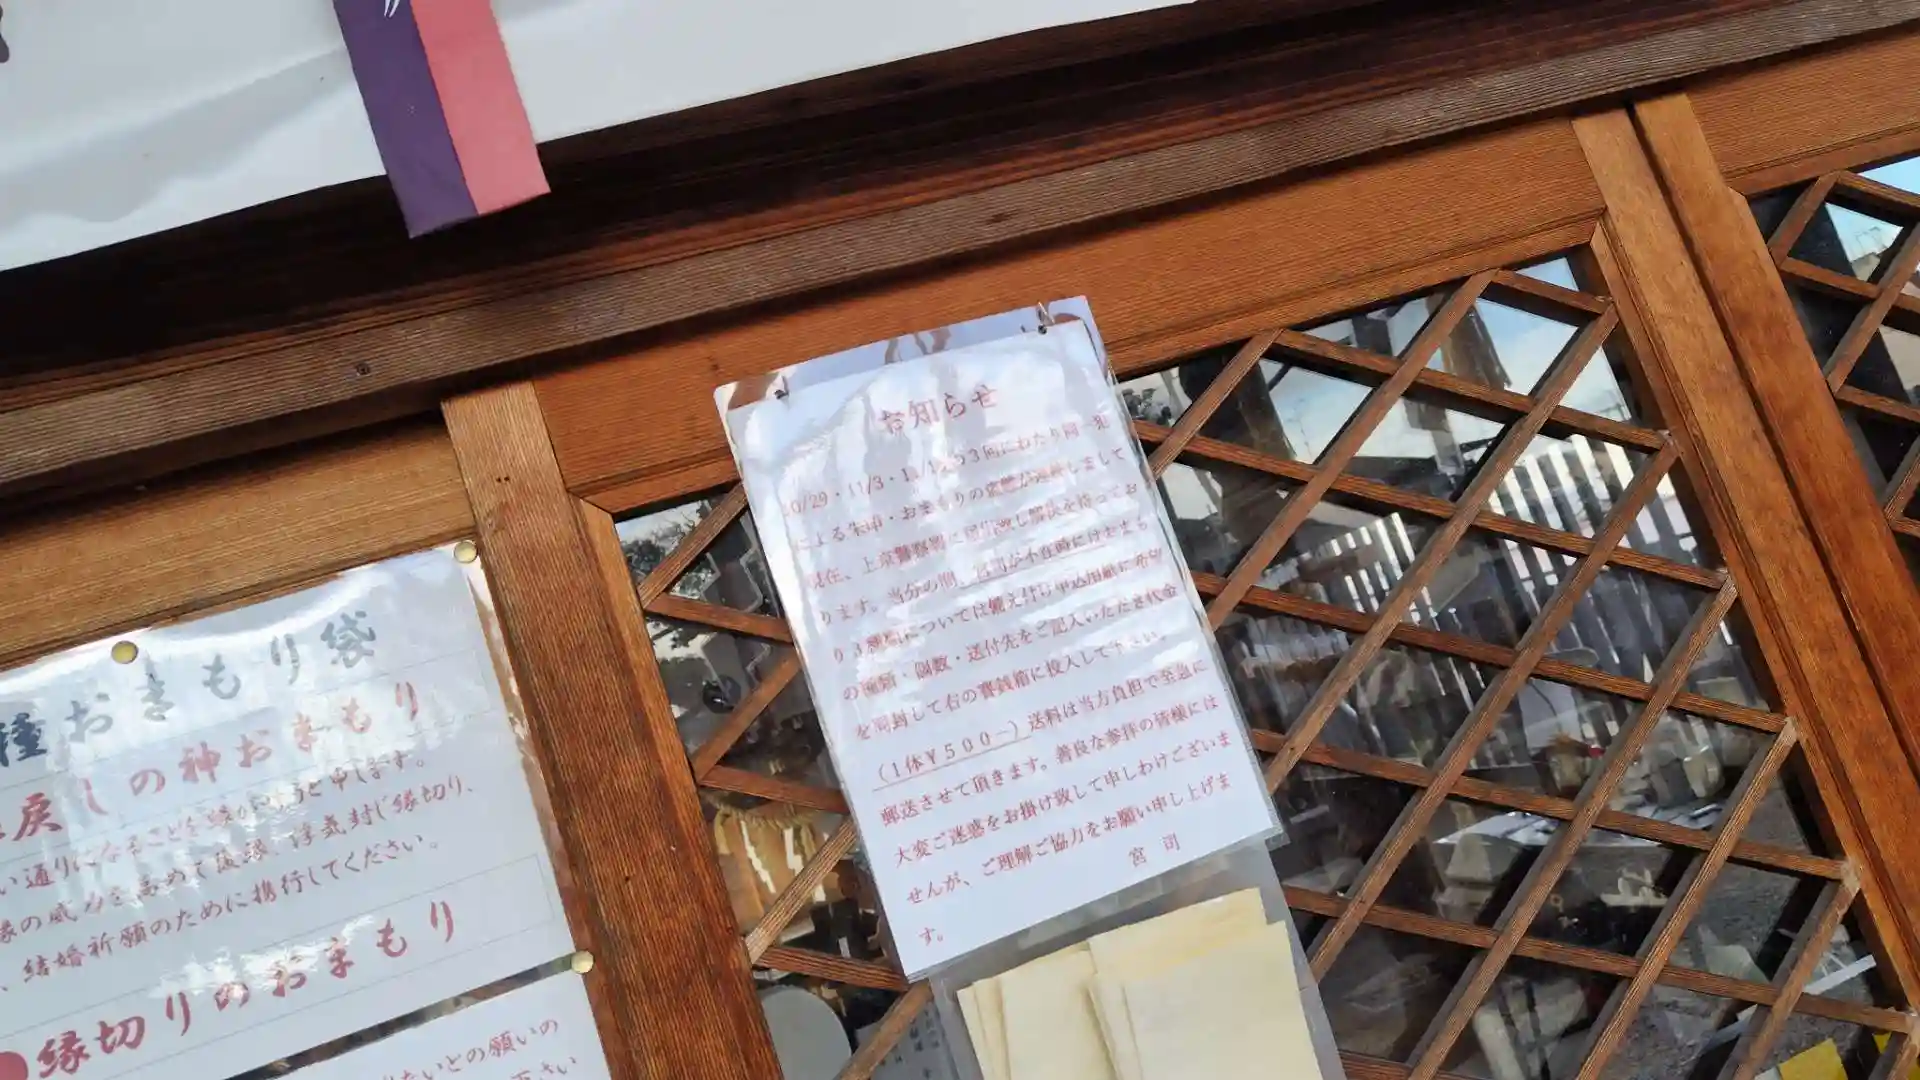 種おまもり袋
戻しの神おまもり
い通りになることを縁が
と申します。
縁の威力を高めて復縁、浮気封じ縁切り、
、結婚祈願のために携行してください。
縁切りのおまもり
いとの願いの
下さい
お知らせ
10/29・11/3・11/
の3回にわたり同一犯
による朱印・おまもりの窃盗が連続しまして
現在、上京警察署に
致し解決を待ってお
ります。当分の間、宮司が不在時にはおまも
り3種類については備え付け申込用紙に希望
の種類・個数・送付先をご記入いただき代金
を同封して右の賽銭箱に投入して下さい。
(1体¥500-)送料は当方負担で至急に
郵送させて頂きます。善良な参拝の皆様には
大変ご迷惑をお掛け致して申しわけございま
せんが、ご理解ご協力をお願い申し上げま
す。
宮司